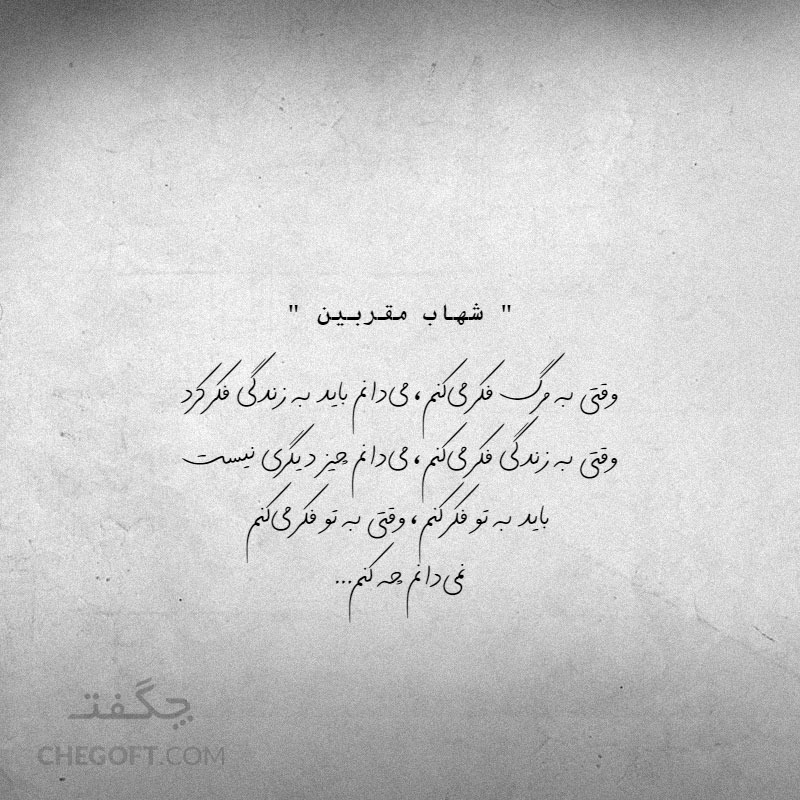 " شهاب مقربین "
وقتی به مرگ فکر می‌کنم، می‌دانم باید به زندگی فکر کرد
وقتی به زندگی فکر می‌کنم، می‌دانم چیز دیگری نیست
باید به تو فکر کنم، وقتی به تو فکر می‌کنم
نمی‌دانم چه کنم...
چگفت
CHEGOFT.COM